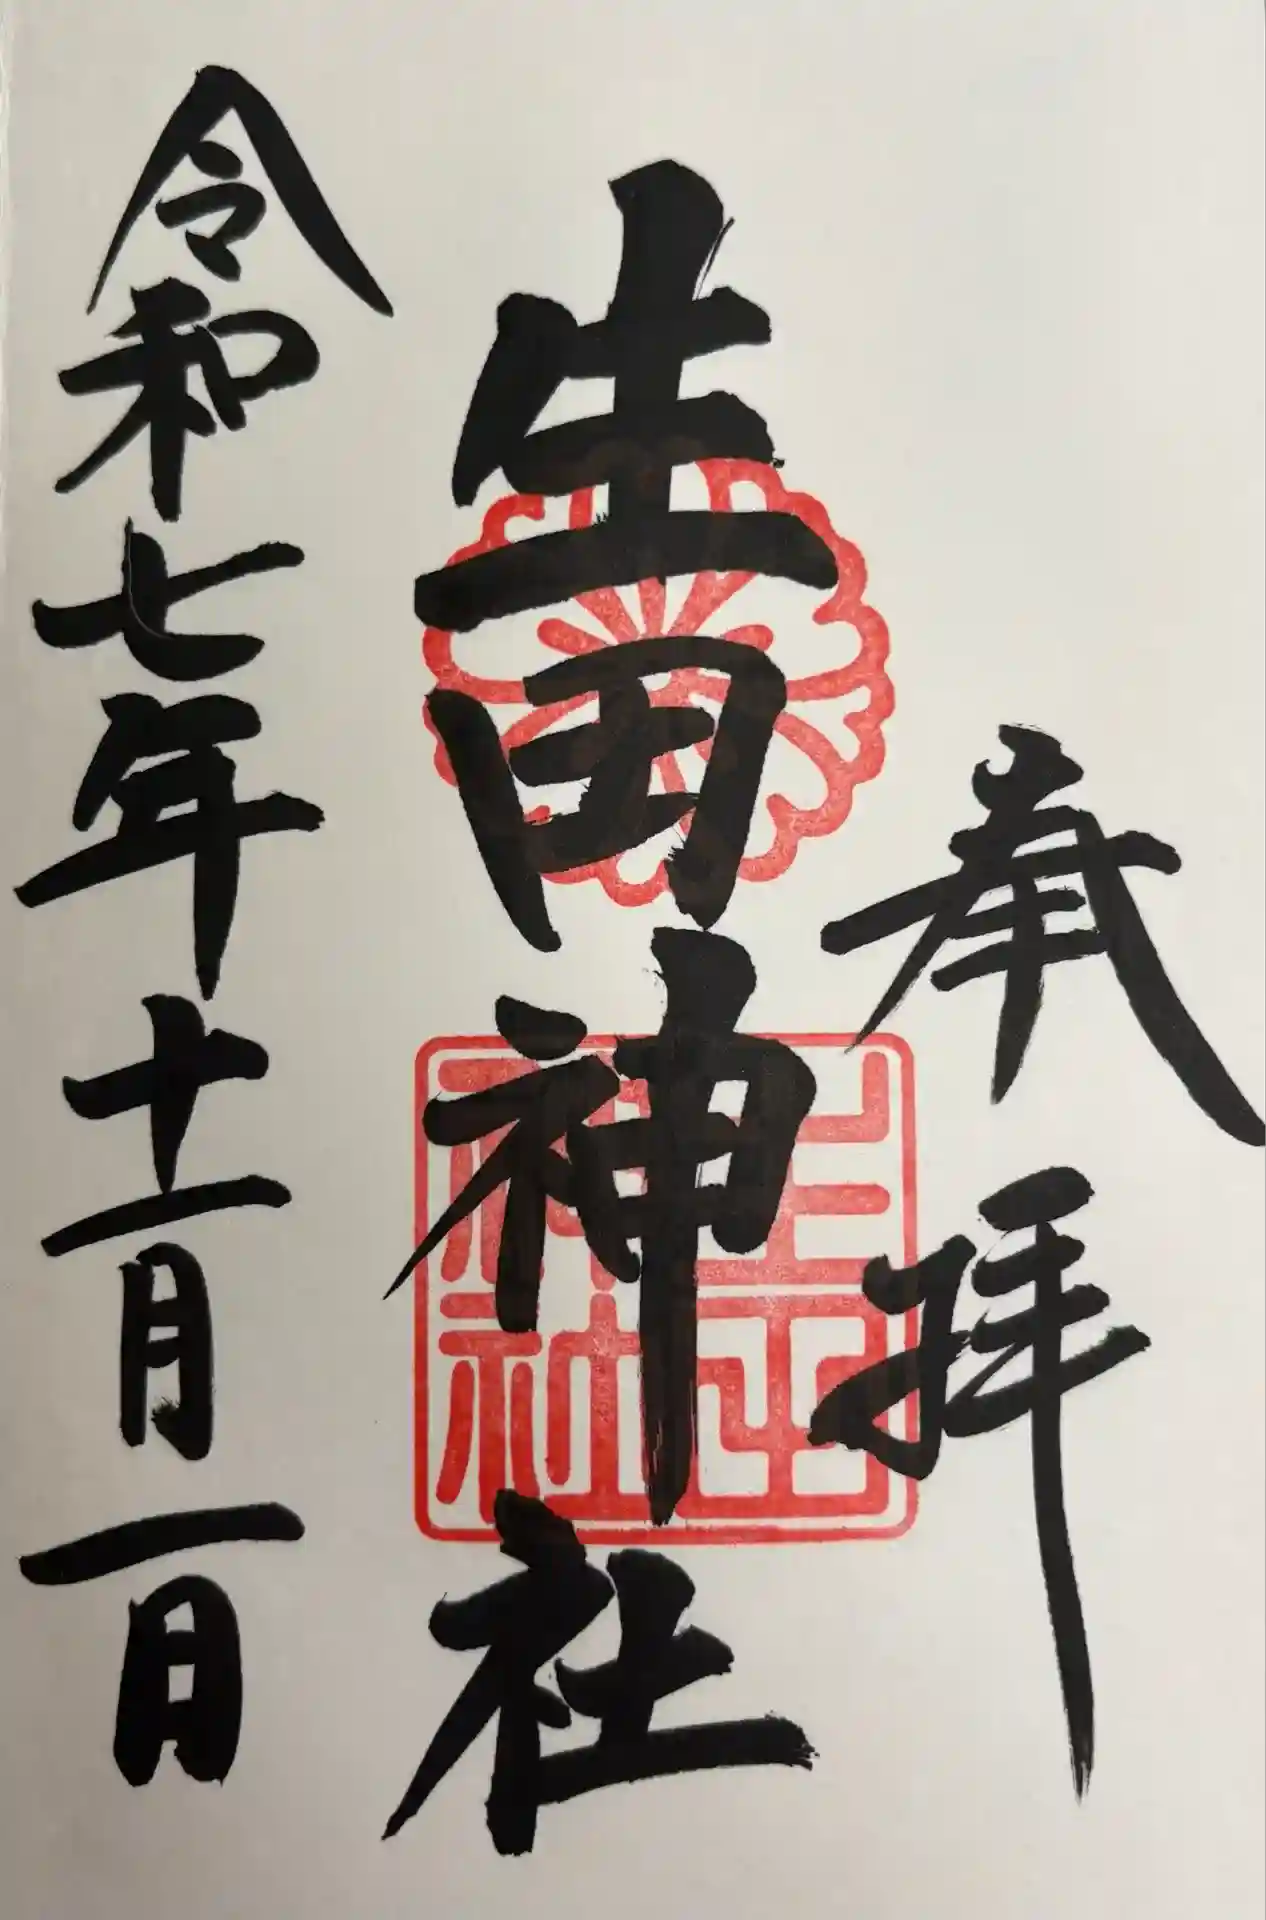 奉拝
生田神社
生田神社
令和七年十一月一日